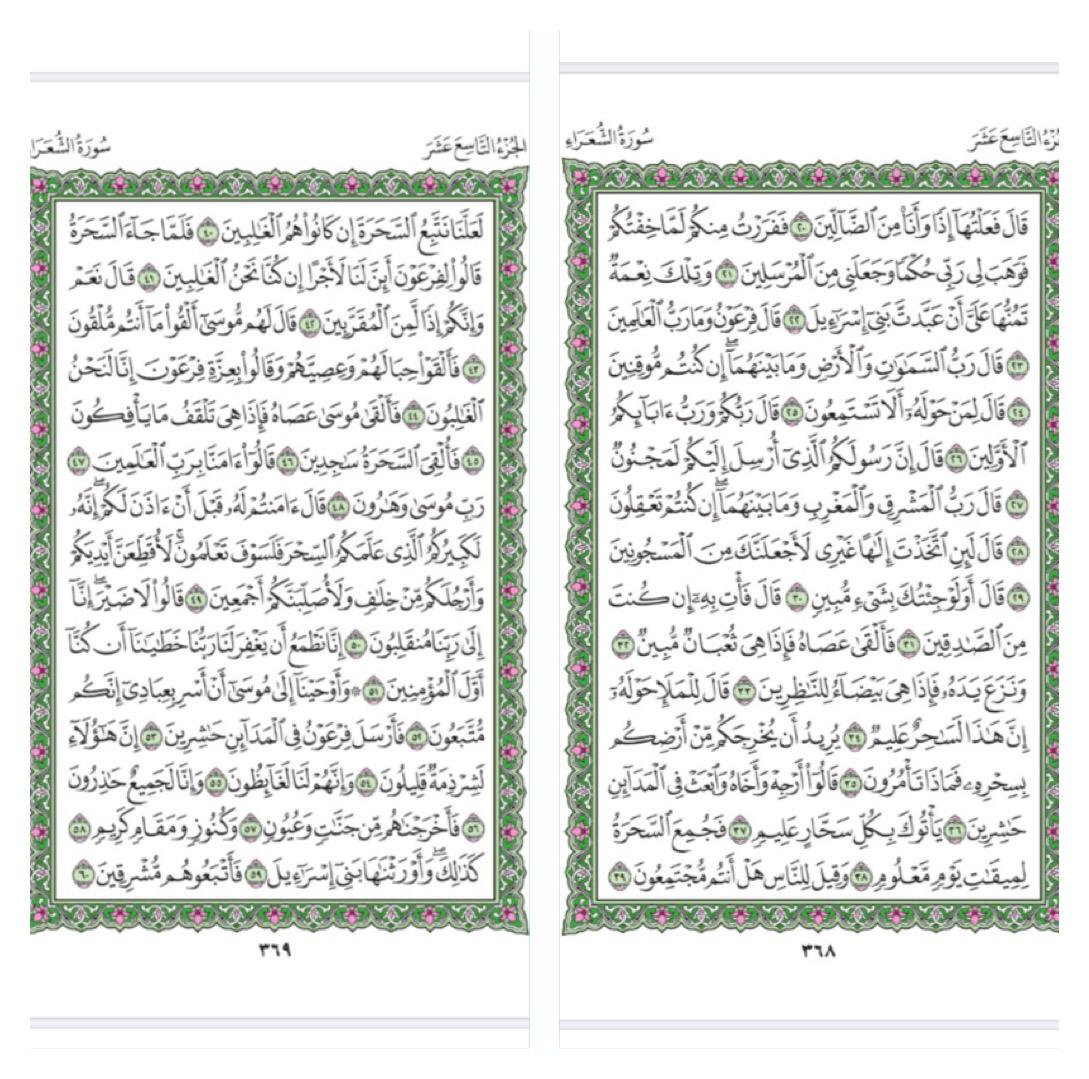 الجزء التاسع عشر
سُورَةُ الشُّعَرَاءِ
قَالَ فَعَلْتُهَا إِذًا وَأَنَا۠ مِنَ الضَّالِّينَ ٢٠ فَفَرَرْتُ مِنكُمْ لَمَّا خِفْتُكُمْ
فَوَهَبَ لِي رَبِّي حُكْمًا وَجَعَلَنِي مِنَ الْمُرْسَلِينَ ٢١ وَتِلْكَ نِعْمَةٌ
تَمُنُّهَا عَلَيَّ أَنْ عَبَّدتَّ بَنِي إِسْرَٰٓءِيلَ ٢٢ قَالَ فِرْعَوْنُ وَمَا رَبُّ الْعَالَمِينَ
٢٣ قَالَ رَبُّ السَّمَٰوَٰتِ وَالْأَرْضِ وَمَا بَيْنَهُمَآ ۖ إِن كُنتُم مُّوقِنِينَ
٢٤ قَالَ لِمَنْ حَوْلَهُۥٓ أَلَا تَسْتَمِعُونَ ٢٥ قَالَ رَبُّكُمْ وَرَبُّ ءَابَآئِكُمُ
الْأَوَّلِينَ ٢٦ قَالَ إِنَّ رَسُولَكُمُ الَّذِيٓ أُرْسِلَ إِلَيْكُمْ لَمَجْنُونٌ
٢٧ قَالَ رَبُّ الْمَشْرِقِ وَالْمَغْرِبِ وَمَا بَيْنَهُمَآ ۖ إِن كُنتُمْ تَعْقِلُونَ
٢٨ قَالَ لَئِنِ اتَّخَذْتَ إِلَٰهًا غَيْرِي لَأَجْعَلَنَّكَ مِنَ الْمَسْجُونِينَ
٢٩ قَالَ أَوَلَوْ جِئْتُكَ بِشَيْءٍ مُّبِينٍ ٣٠ قَالَ فَأْتِ بِهِۦٓ إِن كُنتَ
مِنَ الصَّٰدِقِينَ ٣١ فَأَلْقَىٰ عَصَاهُ فَإِذَا هِيَ ثُعْبَانٌ مُّبِينٌ ٣٢
وَنَزَعَ يَدَهُۥ فَإِذَا هِيَ بَيْضَآءُ لِلنَّٰظِرِينَ ٣٣ قَالَ لِلْمَلَإِ حَوْلَهُۥٓ
إِنَّ هَٰذَا لَسَٰحِرٌ عَلِيمٌ ٣٤ يُرِيدُ أَن يُخْرِجَكُم مِّنْ أَرْضِكُم
بِسِحْرِهِۦ فَمَاذَا تَأْمُرُونَ ٣٥ قَالُوٓا۟ أَرْجِهْ وَأَخَاهُ وَابْعَثْ فِي الْمَدَآئِنِ
حَٰشِرِينَ ٣٦ يَأْتُوكَ بِكُلِّ سَحَّارٍ عَلِيمٍ ٣٧ فَجُمِعَ السَّحَرَةُ
لِمِيقَٰتِ يَوْمٍ مَّعْلُومٍ ٣٨ وَقِيلَ لِلنَّاسِ هَلْ أَنتُم مُّجْتَمِعُونَ ٣٩
٣٦٨
الجزء التاسع عشر
سُورَةُ الشُّعَرَاءِ
لَعَلَّنَا نَتَّبِعُ السَّحَرَةَ إِن كَانُوا۟ هُمُ الْغَٰلِبِينَ ٤٠ فَلَمَّا جَآءَ السَّحَرَةُ
قَالُوا۟ لِفِرْعَوْنَ أَئِنَّ لَنَا لَأَجْرًا إِن كُنَّا نَحْنُ الْغَٰلِبِينَ ٤١ قَالَ نَعَمْ
وَإِنَّكُمْ إِذًا لَّمِنَ الْمُقَرَّبِينَ ٤٢ قَالَ لَهُم مُّوسَىٰٓ أَلْقُوا۟ مَآ أَنتُم مُّلْقُونَ
٤٣ فَأَلْقَوْا۟ حِبَالَهُمْ وَعِصِيَّهُمْ وَقَالُوا۟ بِعِزَّةِ فِرْعَوْنَ إِنَّا لَنَحْنُ
الْغَٰلِبُونَ ٤٤ فَأَلْقَىٰ مُوسَىٰ عَصَاهُ فَإِذَا هِيَ تَلْقَفُ مَا يَأْفِكُونَ
٤٥ فَأُلْقِيَ السَّحَرَةُ سَٰجِدِينَ ٤٦ قَالُوٓا۟ ءَامَنَّا بِرَبِّ الْعَٰلَمِينَ ٤٧
رَبِّ مُوسَىٰ وَهَٰرُونَ ٤٨ قَالَ ءَامَنتُمْ لَهُۥ قَبْلَ أَنْ ءَاذَنَ لَكُمْ ۖ إِنَّهُۥ
لَكَبِيرُكُمُ الَّذِي عَلَّمَكُمُ السِّحْرَ فَلَسَوْفَ تَعْلَمُونَ ۚ لَأُقَطِّعَنَّ أَيْدِيَكُمْ
وَأَرْجُلَكُم مِّنْ خِلَٰفٍ وَلَأُصَلِّبَنَّكُمْ أَجْمَعِينَ ٤٩ قَالُوا۟ لَا ضَيْرَ ۖ إِنَّآ
إِلَىٰ رَبِّنَا مُنقَلِبُونَ ٥٠ إِنَّا نَطْمَعُ أَن يَغْفِرَ لَنَا رَبُّنَا خَطَٰيَٰنَآ أَن كُنَّآ
أَوَّلَ الْمُؤْمِنِينَ ٥١ ۞ وَأَوْحَيْنَآ إِلَىٰ مُوسَىٰٓ أَنْ أَسْرِ بِعِبَادِيٓ إِنَّكُم
مُّتَّبَعُونَ ٥٢ فَأَرْسَلَ فِرْعَوْنُ فِي الْمَدَآئِنِ حَٰشِرِينَ ٥٣ إِنَّ هَٰٓؤُلَآءِ
لَشِرْذِمَةٌ قَلِيلُونَ ٥٤ وَإِنَّهُمْ لَنَا لَغَآئِظُونَ ٥٥ وَإِنَّا لَجَمِيعٌ حَٰذِرُونَ
٥٦ فَأَخْرَجْنَٰهُم مِّن جَنَّٰتٍ وَعُيُونٍ ٥٧ وَكُنُوزٍ وَمَقَامٍ كَرِيمٍ ٥٨
كَذَٰلِكَ ۖ وَأَوْرَثْنَٰهَا بَنِيٓ إِسْرَٰٓءِيلَ ٥٩ فَأَتْبَعُوهُم مُّشْرِقِينَ ٦٠
٣٦٩